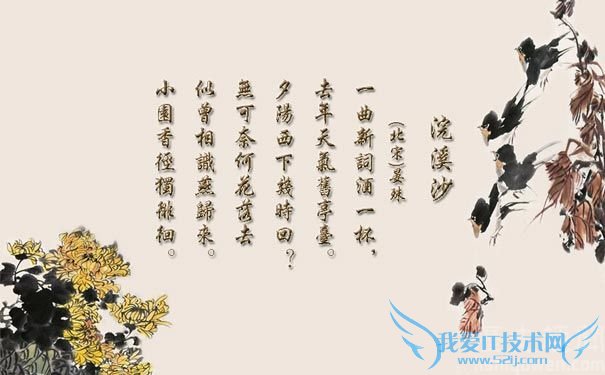 浣溪沙
(北宋)晏殊
一曲新詞酒一杯,
去年天氣舊亭臺。
夕陽西下幾時回?
無可奈何花落去
似曾相識燕歸來。
小園香徑獨徘徊。
我爱IT技术网
www.52ij.com